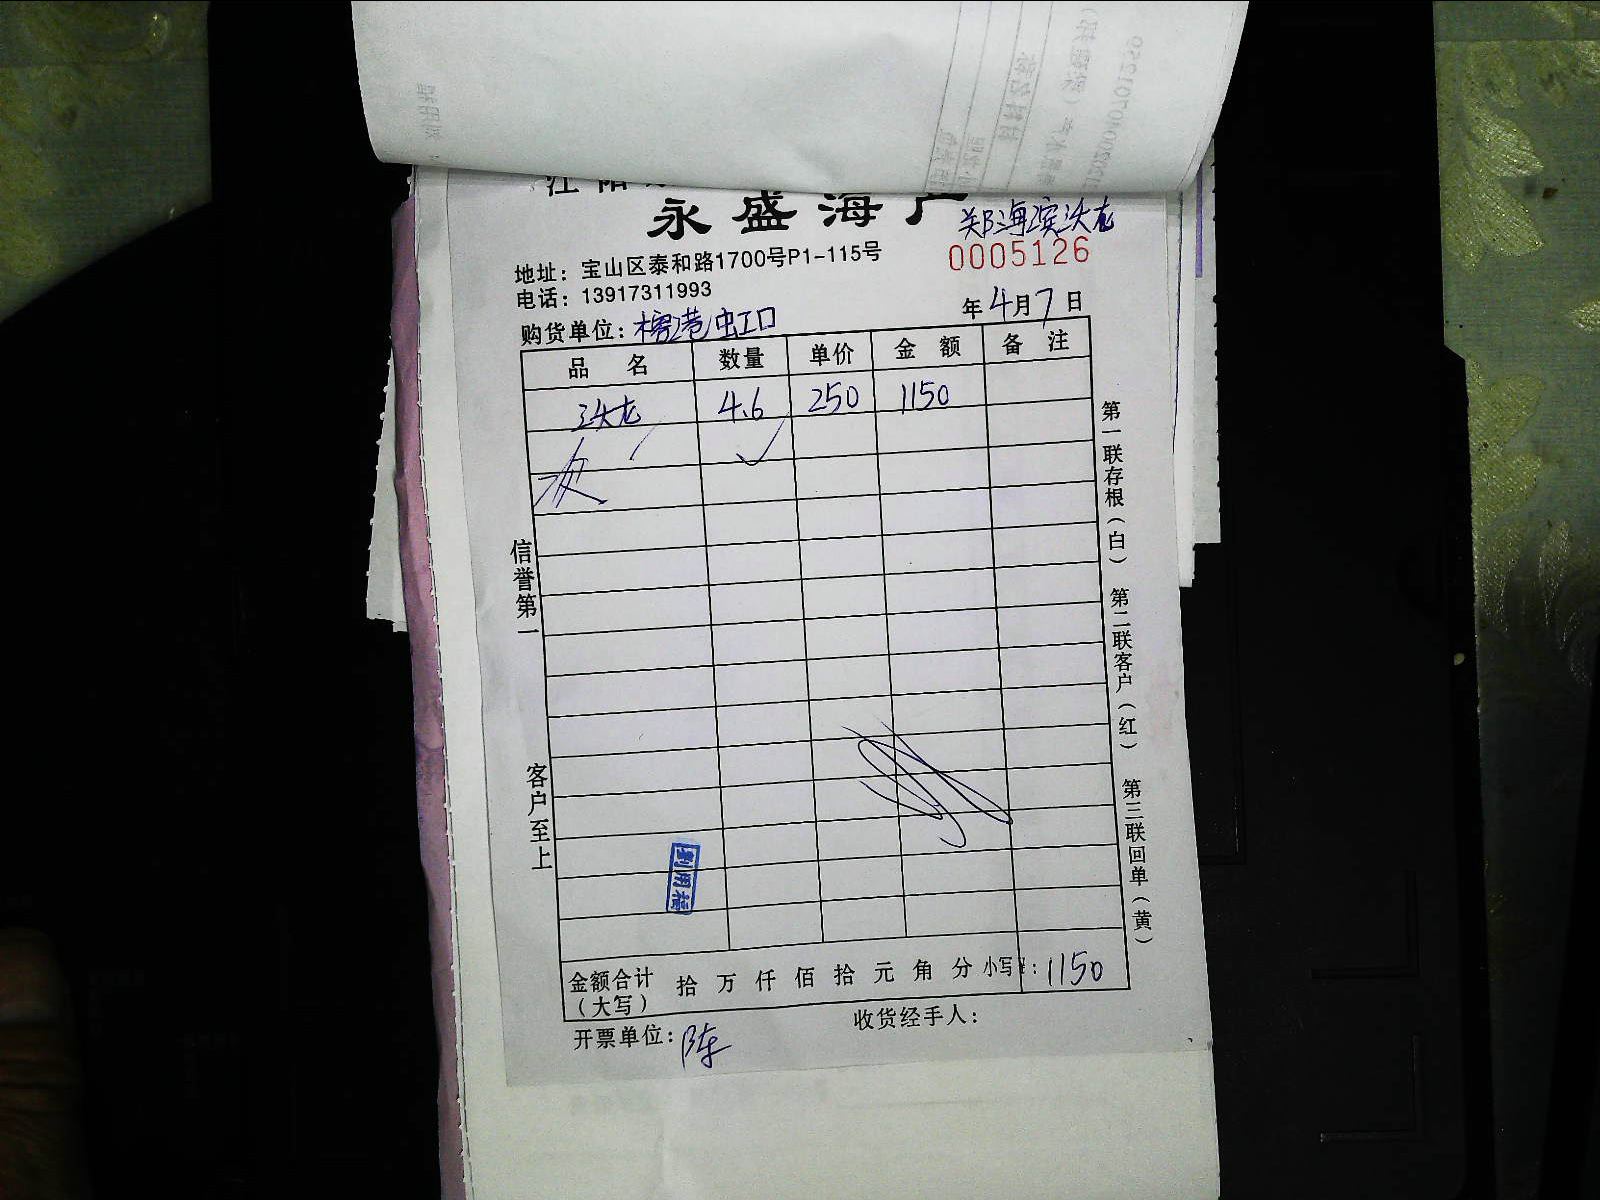 永盛海产
郑海滨沃龙
0005126
地址：宝山区泰和路1700号P1-115号
电话：13917311993
年4月7日
购货单位：榕港虹口
品名 数量 单价 金额 备注
沃龙 4.6 250 1150
信誉第一
客户至上
第一联存根（白）
第二联客户（红）
第三联回单（黄）
金额合计（大写） 拾 万 仟 佰 拾 元 角 分 小写￥：1150
开票单位：陈
收货经手人：